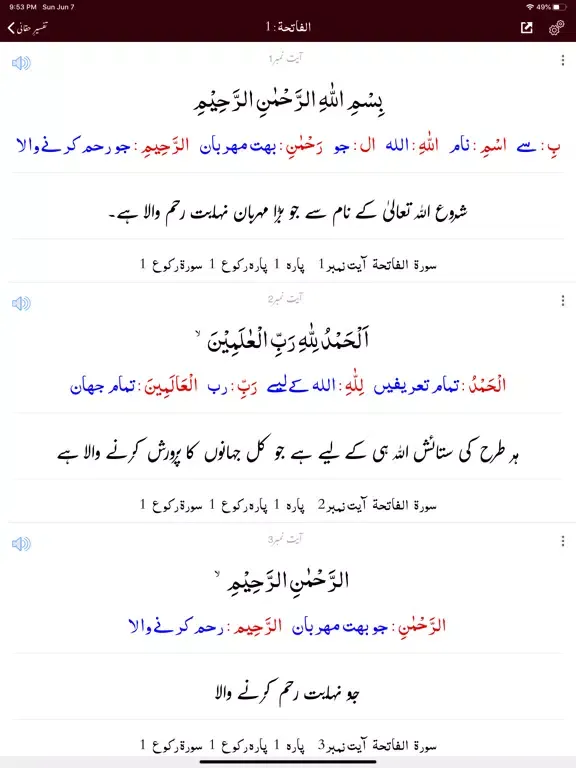 9:53 PM Sun Jun 7 49%
تفسیر حقانی
الفاتحة:1
آیت نمبر1
بِسْمِ اللهِ الرَّحْمٰنِ الرَّحِيْمِ
بِ: سے اسْمِ: نام اللهِ: الله ال: جو رَحْمٰنِ: بهت مهربان الرَّحِيمِ: جو رحم کرنے والا
شروع اللہ تعالیٰ کے نام سے جو بڑا مہربان نہایت رحم والا ہے۔
سورة الفاتحة آیت نمبر1 پارہ 1 پارہ رکوع 1 سورة رکوع 1
آیت نمبر2
اَلْحَمْدُ لِلّٰهِ رَبِّ الْعٰلَمِيْنَ ۙ
الْحَمْدُ: تمام تعریفیں لِلّٰهِ: الله کے لیے رَبِّ: رب الْعَالَمِينَ: تمام جهان
ہر طرح کی ستائش اللہ ہی کے لیے ہے جو کل جہانوں کا پرورش کرنے والا ہے
سورة الفاتحة آیت نمبر2 پارہ 1 پارہ رکوع 1 سورة رکوع 1
آیت نمبر3
الرَّحْمٰنِ الرَّحِيْمِ ۙ
الرَّحْمٰنِ: جو بهت مهربان الرَّحِيم: رحم کرنے والا
جو نہایت رحم کرنے والا
سورة الفاتحة آیت نمبر3 پارہ 1 پارہ رکوع 1 سورة رکوع 1